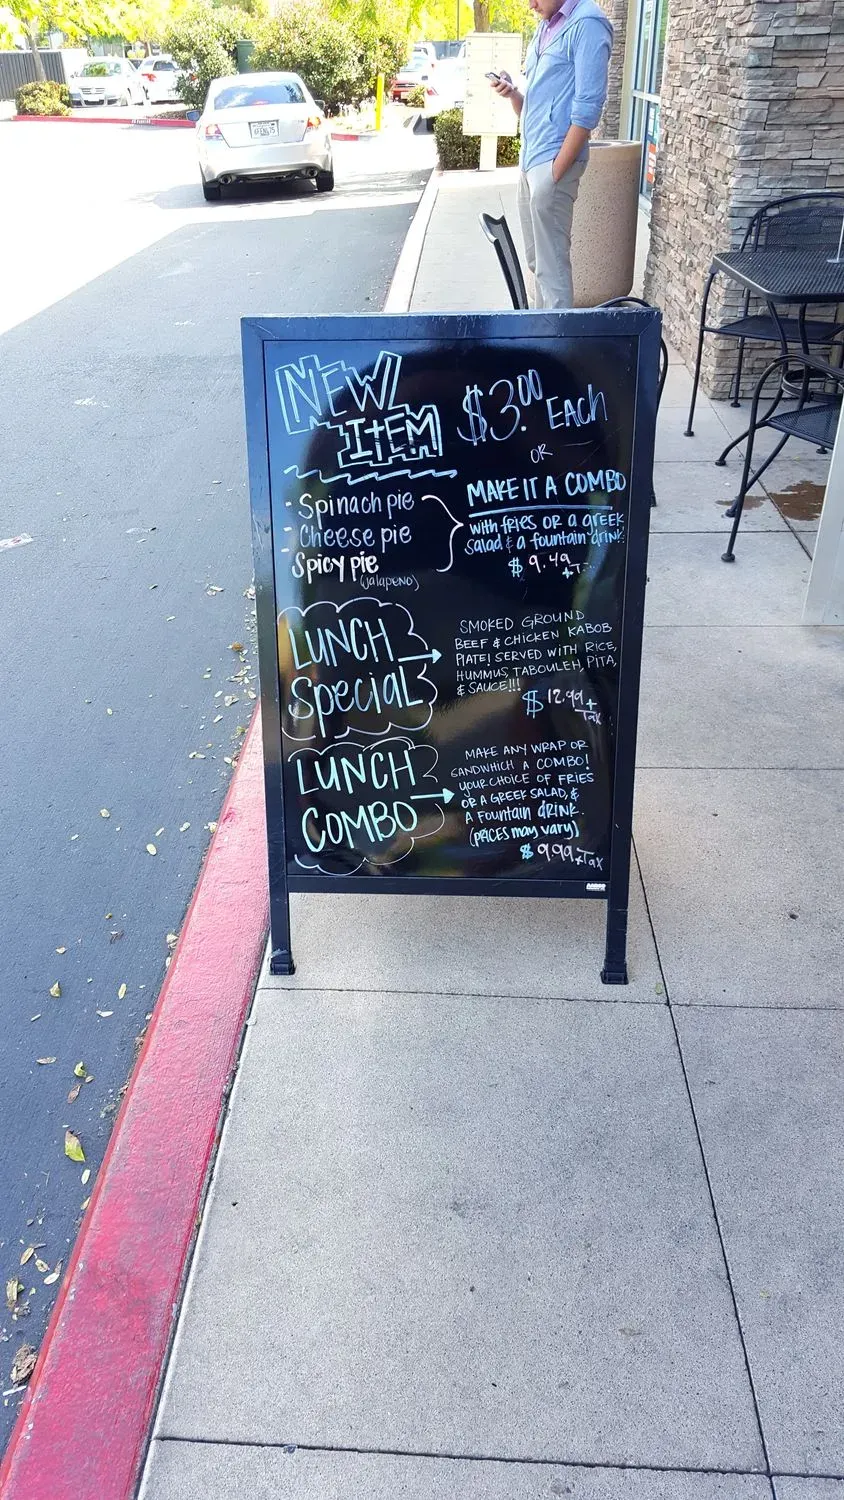 NEW
ITEM
$3.00 EACH
OR
- Spinach pie
- Cheese pie
- Spicy pie
(jalapeno)
MAKE IT A COMBO
with fries OR a greek
salad & a fountain drink!
$ 9.49
+T
LUNCH
Special
SMOKED GROUND
BEEF & CHICKEN KABOB
PLATE! SERVED WITH RICE,
HUMMUS, TABOULEH, PITA,
& SAUCE!!!
$ 12.99 +
Tax
LUNCH
COMBO
MAKE ANY WRAP OR
SANDWHICH A COMBO!
YOUR CHOICE OF FRIES
OR A GREEK SALAD, &
A Fountain dRINK.
(PRICES may vary)
$ 9.99 + Tax